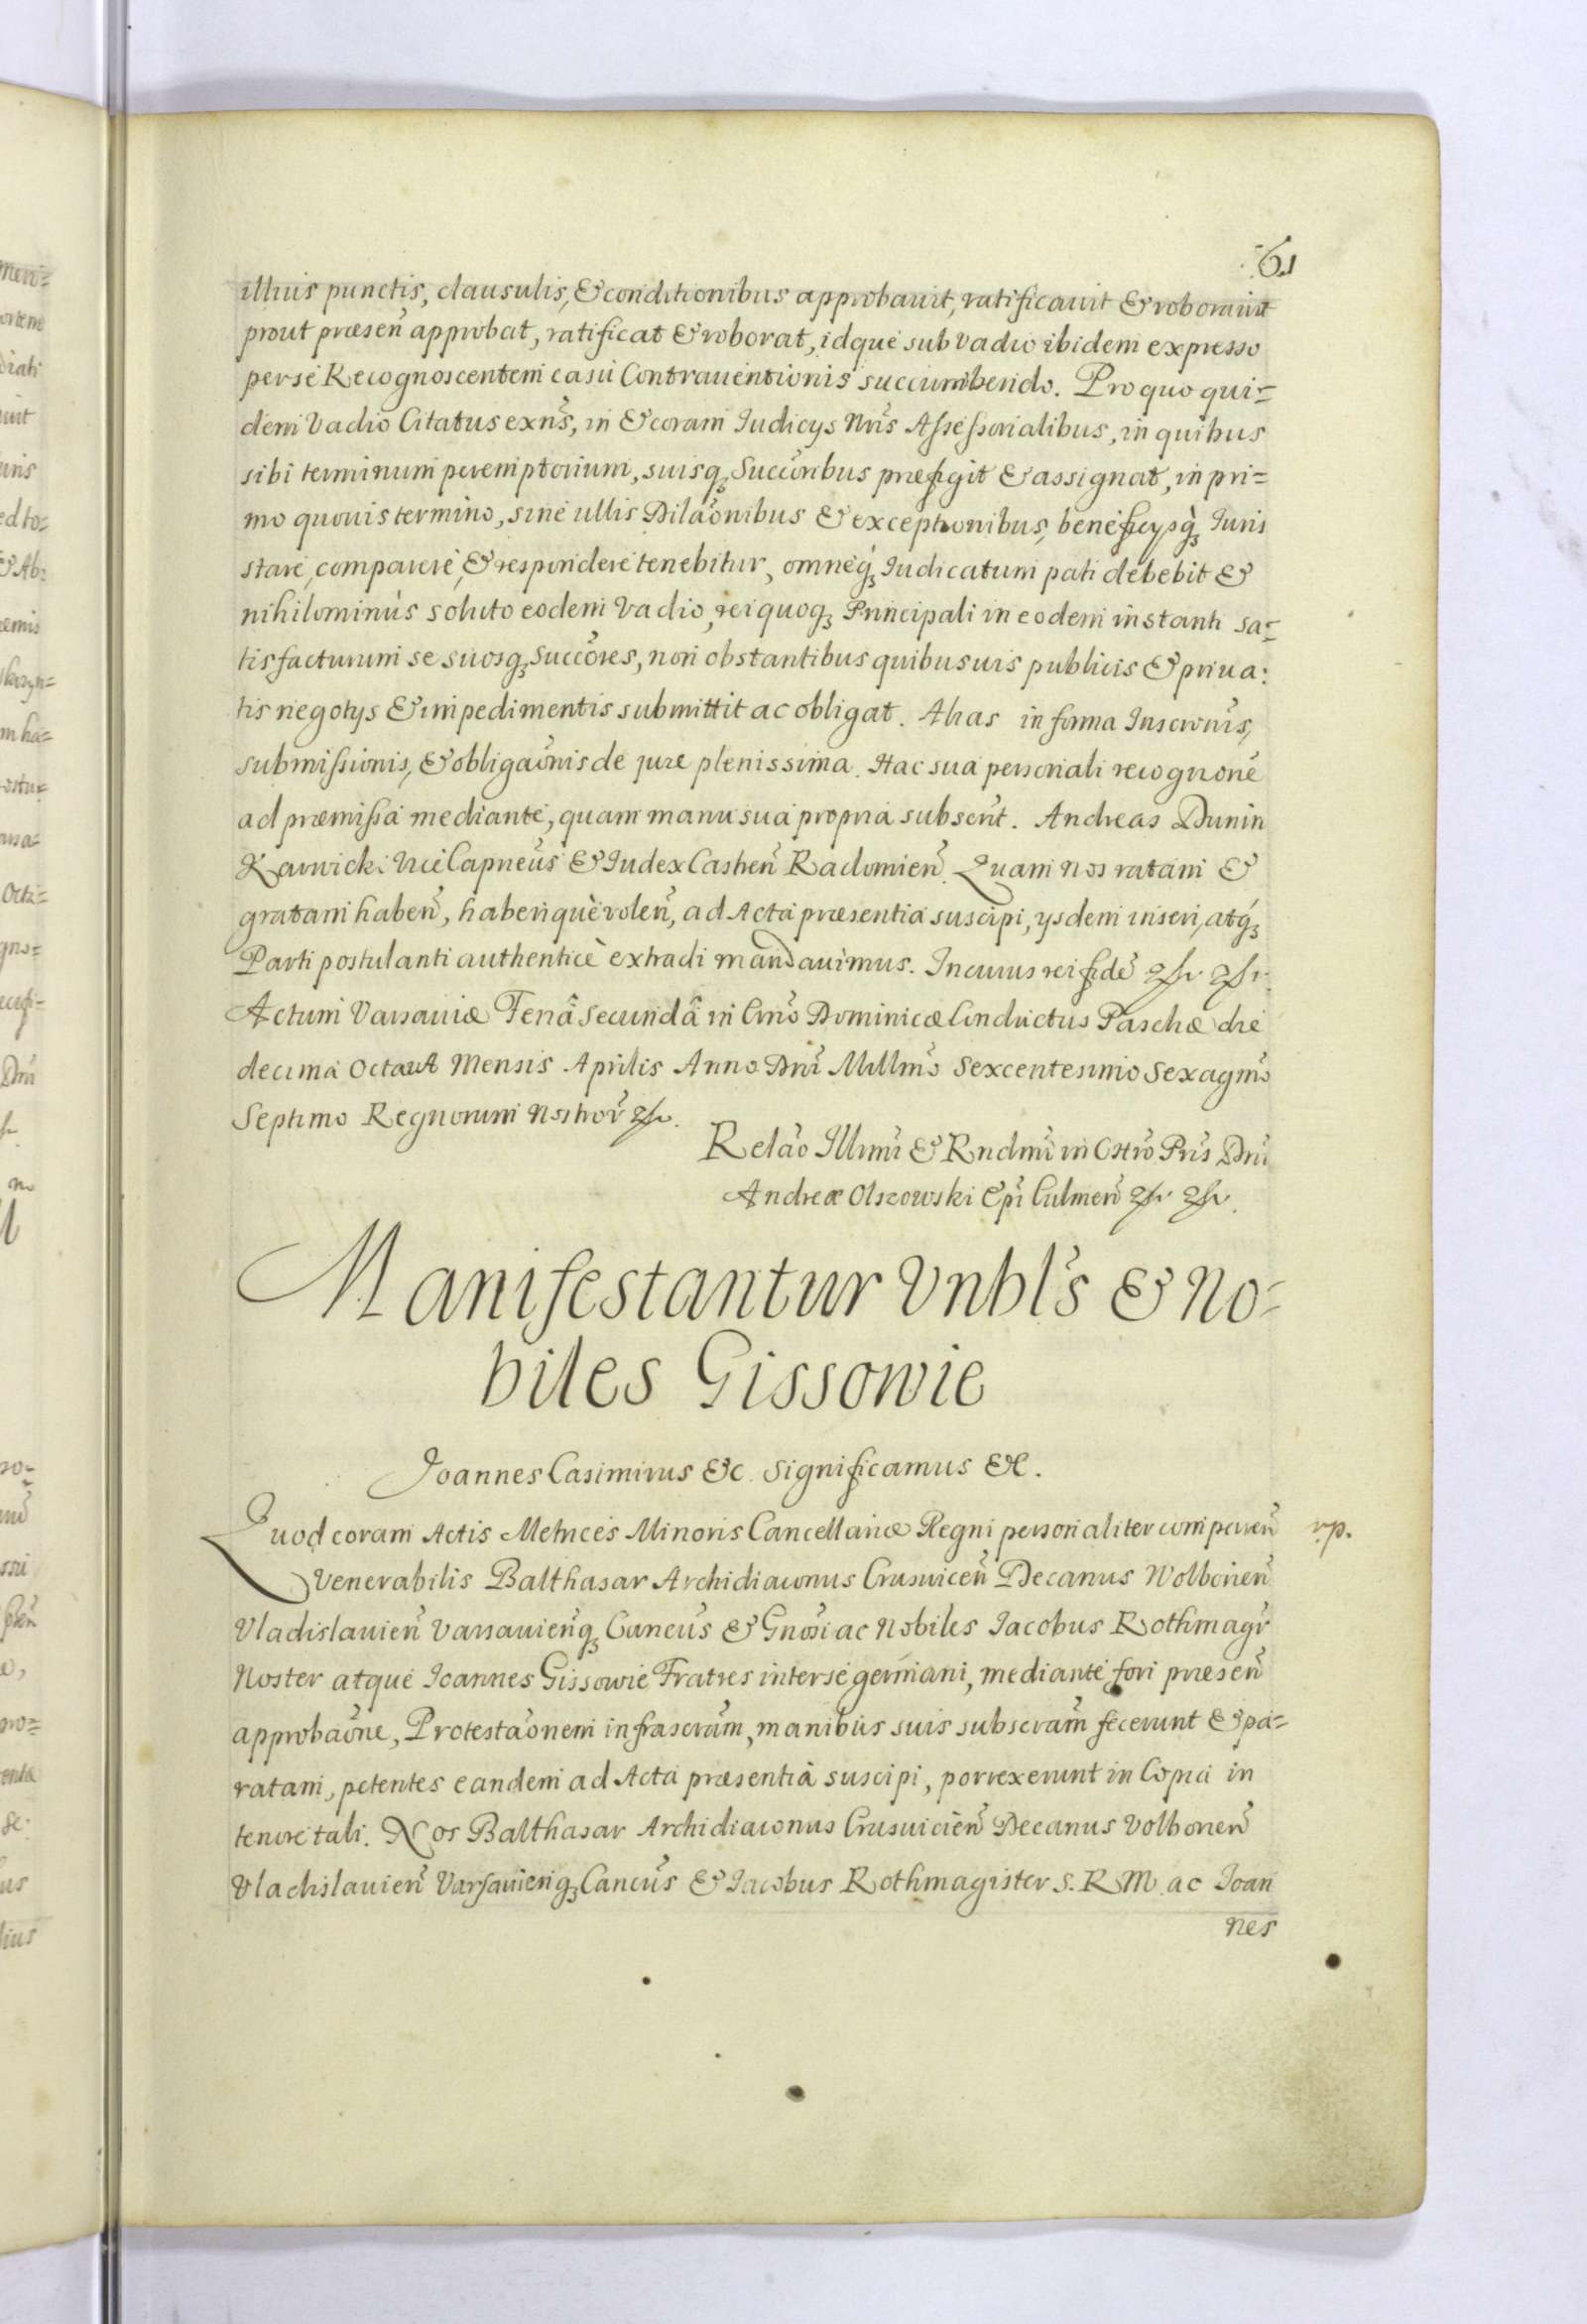 61
illius punctis, clausulis, & conditionibus approbauit, ratificauit & roborauit
prout præsen̄ approbat, ratificat & roborat, idque sub vadio ibidem expresso
per se Recognoscentem casu Contrauentionis succumbendo. Pro quo qui=
dem Vadio Citatus exn̄s, in & coram Iudicys Nr̄is Assessorialibus, in quibus
sibi terminum peremptorium, suisq̨ Succōribus præfigit & assignat, in pri=
mo quouis termino, sine ullis Dilaōnibus & exceptionibus, beneficysq̨ Iuris
stare, comparere, & respondere tenebitur, omneq̨ Iudicatum pati debebit &
nihilominùs soluto eodem Vadio, rei quoq̨ Principali in eodem instanti sa=
tisfacturum se suosq̨ Succōres, non obstantibus quibusuis publicis & priua:
tis negotys & impedimentis submittit ac obligat. Alias in forma Inscrōnis,
submissionis, & obligaōnis de jure plenissima. Hac sua personali recognōne
ad præmissa mediante, quam manu sua propria subscrit. Andreas Dunin
Karwicki Vice Capneūs & Iudex Castren̄ Radomien̄. Quam Nos ratam &
gratam haben̄, haberiquè volen̄, ad Acta præsentia suscipi, ysdem inseri, atq̨
Parti postulanti authenticè extradi mandauimus. In cuius rei fidē
Actum Varsauiæ Feriâ Secundâ in Crn̄o Dominicæ Conductus Paschæ die
decima Octaua Mensis Aprilis Anno Dni Millmō Sexcentesimo Sexagmō
Septimo Regnorum Nostror̄
Relāo Illmi & Rndmi in Chrō Pris Dni
Andreæ Olszowski Epi Culmen̄
Manifestantur Vnbl's & No=
biles Gissowie
Joannes Casimirus &c. Significamus &c.
Quod coram Actis Metrices Minoris Cancellariæ Regni personaliter comparen̄
rp.
Venerabilis Balthasar Archidiaconus Crusuicen̄ Decanus Wolborien̄
Vladislauien̄ Varsauien̄q̨ Cancūs & Gnosi ac Nobiles Iacobus Rothmagr̄
Noster atque Ioannes Gissowie Fratres inter se germani, mediante fori præsen̄
approbaōne, Protestaōnem infrascrām, manibus suis subscrām fecerunt & pa=
ratam, petentes eandem ad Acta præsentia suscipi, porrexerunt in Copia in
tenore tali. Nos Balthasar Archidiaconus Crusuicien̄ Decanus Volboren̄
Vladislauien̄ Varsauienq̨ Cancūs & Iacobus Rothmagister S. R. M. ac Ioan
nes